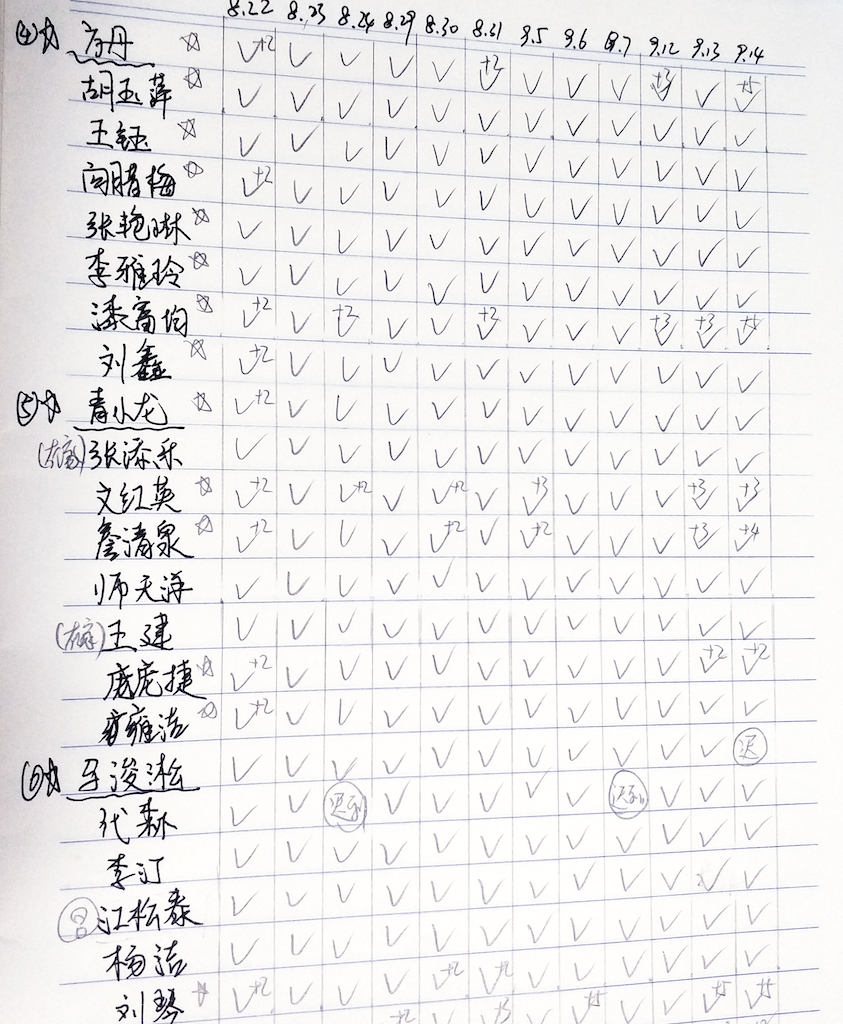 8.22 8.23 8.24 8.29 8.30 8.31 9.5 9.6 9.7 9.12 9.13 9.14
④☆ 方丹 ☆ ✓+2 ✓ ✓ ✓ ✓ ✓+2 ✓ ✓ ✓ ✓+3 ✓ ✓+5
胡玉萍 ☆ ✓ ✓ ✓ ✓ ✓ ✓ ✓ ✓ ✓ ✓ ✓ ✓
王钰 ☆ ✓ ✓ ✓ ✓ ✓ ✓ ✓ ✓ ✓ ✓ ✓ ✓
向腊梅 ☆ ✓+2 ✓ ✓ ✓ ✓ ✓ ✓ ✓ ✓ ✓ ✓ ✓
张艳琳 ☆ ✓ ✓ ✓ ✓ ✓ ✓ ✓ ✓ ✓ ✓ ✓ ✓
李雅玲 ☆ ✓ ✓ ✓ ✓ ✓ ✓ ✓ ✓ ✓ ✓ ✓ ✓
漆富均 ☆ ✓+2 ✓ ✓+2 ✓ ✓ ✓+2 ✓ ✓ ✓ ✓+3 ✓+3 ✓
刘鑫 ☆ ✓+2 ✓ ✓ ✓ ✓ ✓ ✓ ✓ ✓ ✓ ✓ ✓
⑤☆ 青小龙 ☆ ✓+2 ✓ ✓ ✓ ✓ ✓ ✓ ✓ ✓ ✓ ✓ ✓
张添乐 ✓ ✓ ✓ ✓ ✓ ✓ ✓ ✓ ✓ ✓ ✓ ✓
文红英 ☆ ✓+2 ✓ ✓+2 ✓ ✓+2 ✓ ✓+3 ✓ ✓ ✓ ✓+3 ✓+3
清泉 ☆ ✓+2 ✓ ✓ ✓ ✓+2 ✓ ✓+2 ✓ ✓ ✓ ✓+3 ✓+4
师天海 ✓ ✓ ✓ ✓ ✓ ✓ ✓ ✓ ✓ ✓ ✓ ✓
王建 ✓ ✓ ✓ ✓ ✓ ✓ ✓ ✓ ✓ ✓ ✓ ✓
庞捷 ☆ ✓+2 ✓ ✓ ✓ ✓ ✓ ✓ ✓ ✓ ✓ ✓+2 ✓+2
雍洁 ☆ ✓+2 ✓ ✓ ✓ ✓ ✓ ✓ ✓ ✓ ✓ ✓ ✓
⑥☆ 浚淞 ✓ ✓ ✓ ✓ ✓ ✓ ✓ ✓ ✓ ✓ ✓ 迟
代森 ✓ ✓ 迟到 ✓ ✓ ✓ ✓ ✓ 迟到 ✓ ✓ ✓
李汀 ✓ ✓ ✓ ✓ ✓ ✓ ✓ ✓ ✓ ✓ ✓ ✓
江松泰 ✓ ✓ ✓ ✓ ✓ ✓ ✓ ✓ ✓ ✓ ✓ ✓
杨洁 ✓ ✓ ✓ ✓ ✓ ✓ ✓ ✓ ✓ ✓ ✓ ✓
刘琴 ☆ ✓+2 ✓ ✓ ✓ ✓+2 ✓+2 ✓ ✓ ✓ ✓ ✓+5 ✓+5